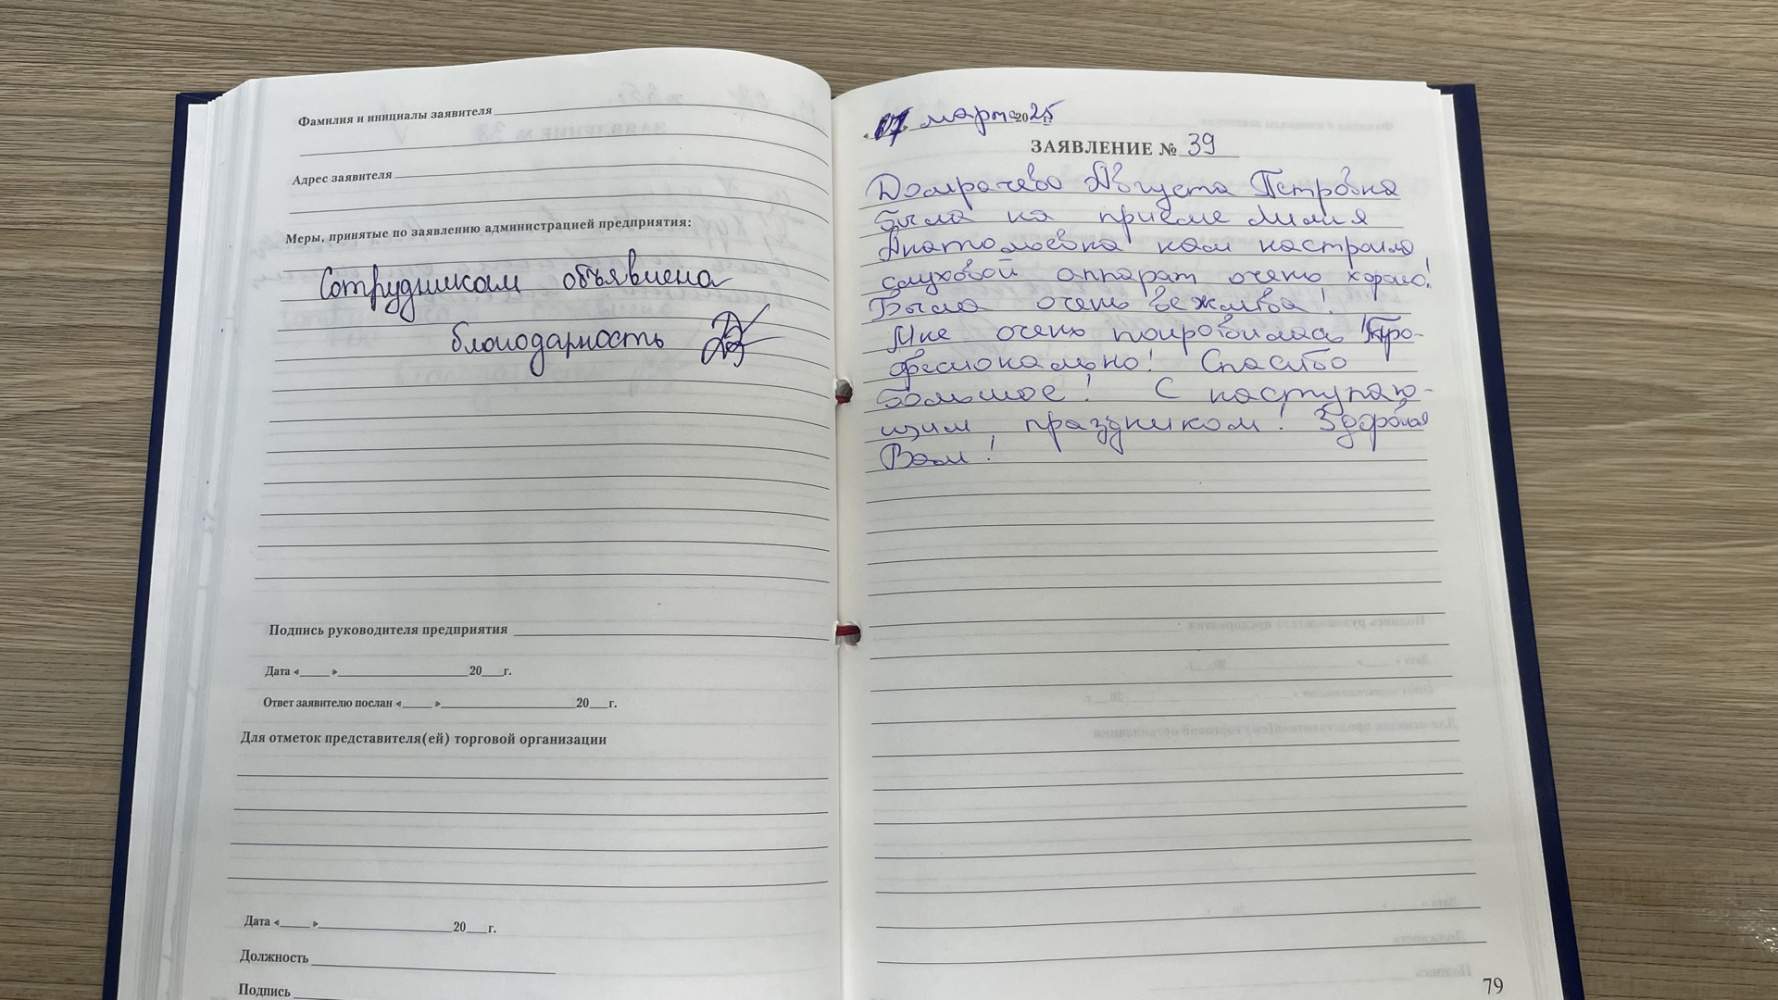 Фамилия и инициалы заявителя
Адрес заявителя
Меры, принятые по заявлению администрацией предприятия:
Сотрудникам объявлена
благодарность
Подпись руководителя предприятия
Дата «____»____20___г.
Ответ заявителю послан «____»____20___г.
Для отметок представителя(ей) торговой организации
Дата «____»____20___г.
Должность
Подпись
март 2025
ЗАЯВЛЕНИЕ № 39
Домрачева Августа Петровна
Была на приеме Лилия
Анатольевна нам настроила
слуховой аппарат очень хорошо!
Была очень вежлива!
Мне очень понравилась! Про-
фесионально! Спасибо
большое! С наступаю-
щим праздником! Здоровья
Вам!
79